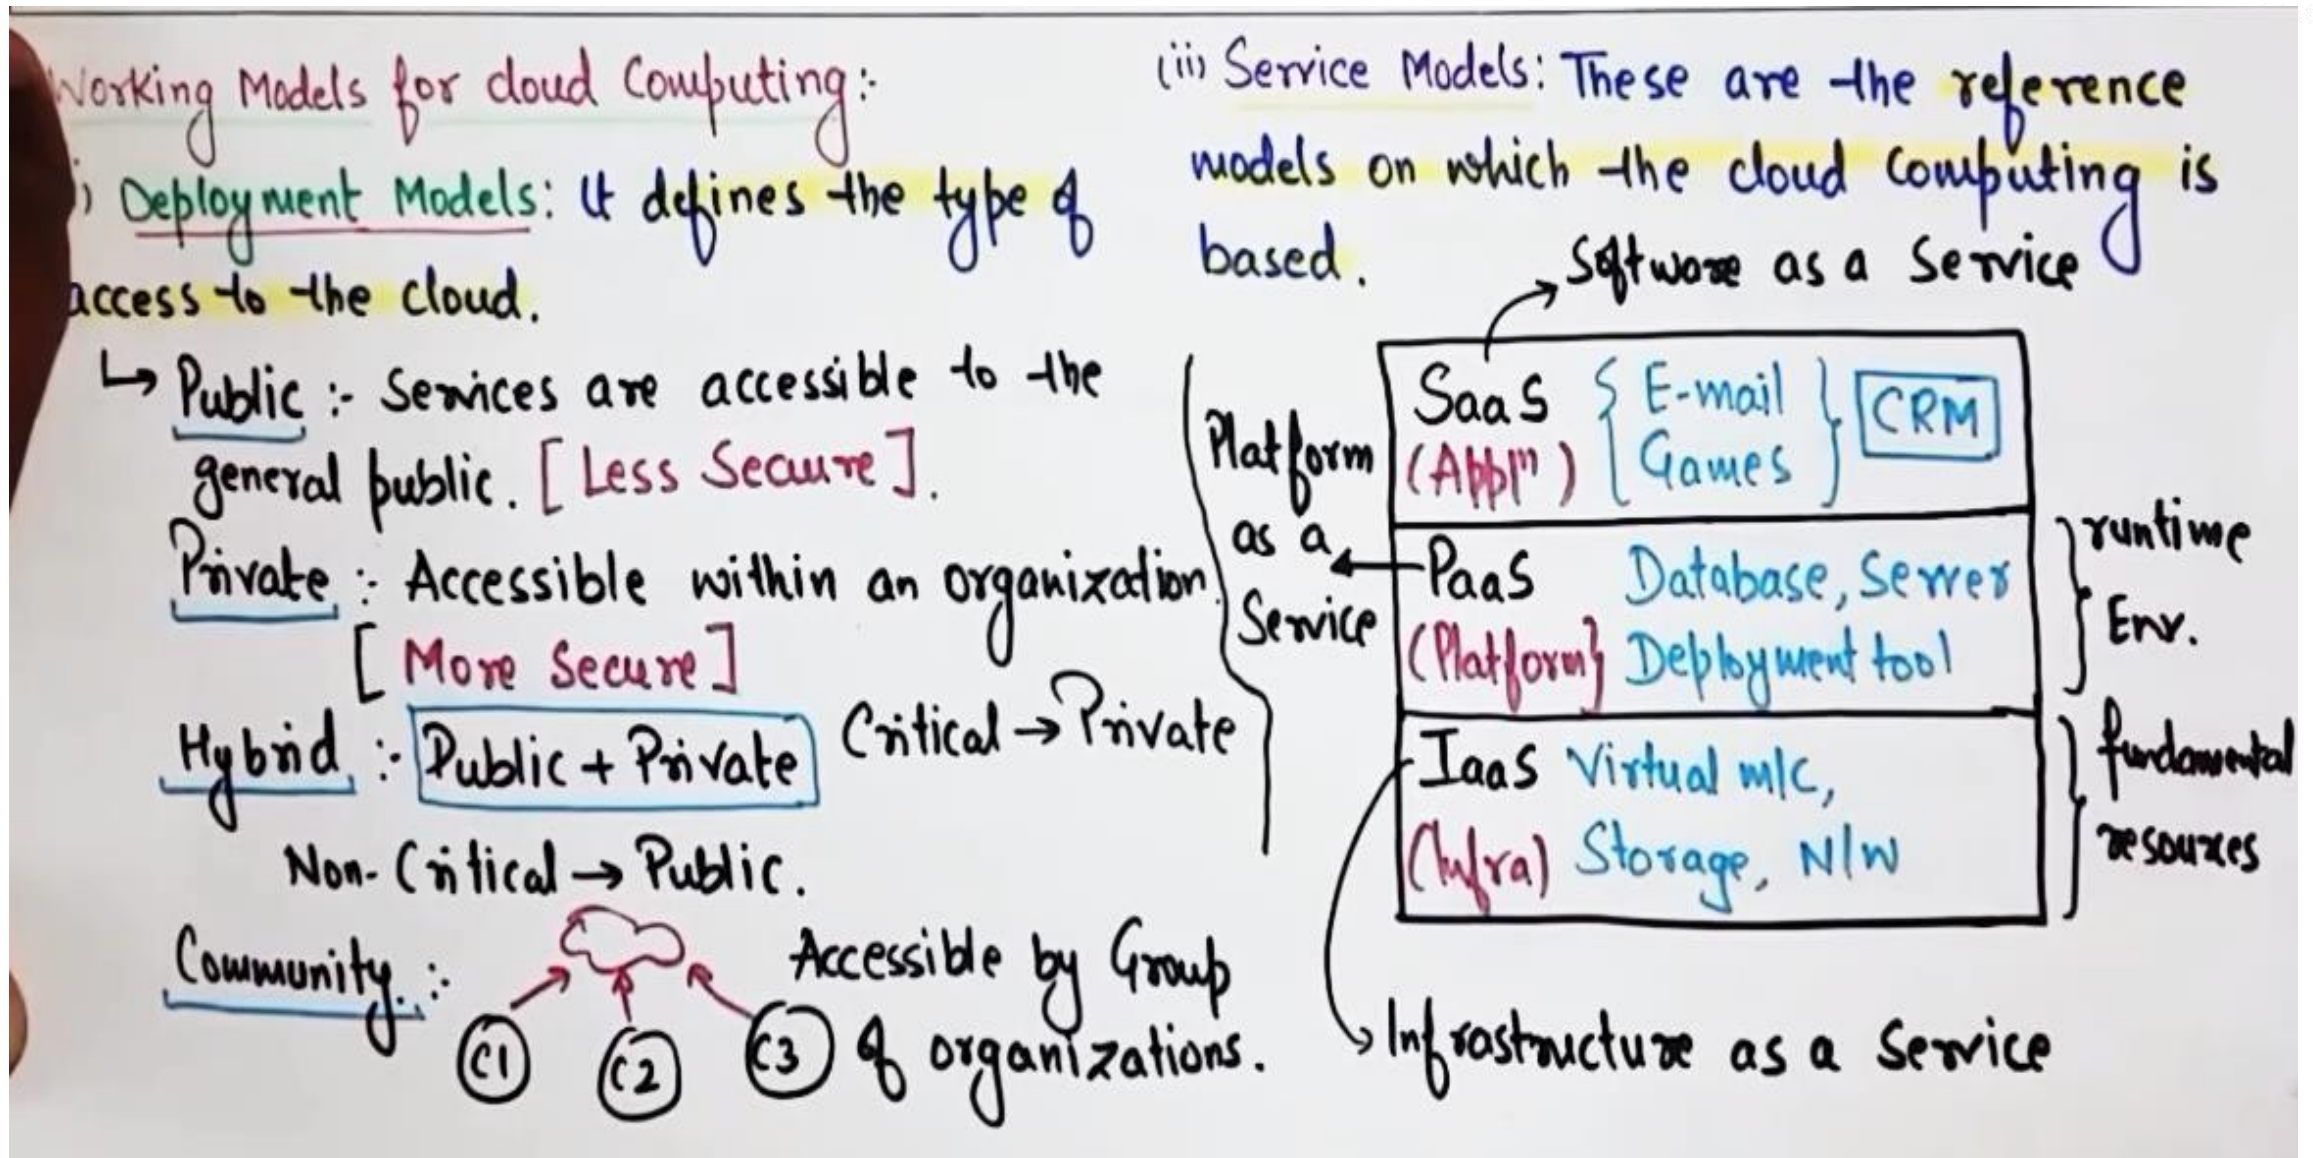 Working Models for cloud Computing:-
i) Deployment Models: It defines the type of
access to the cloud.
↳ Public :- Services are accessible to the
general public. [Less Secure].
Private :- Accessible within an organization.
[More Secure]
Hybrid :- Public + Private Critical → Private
Non-Critical → Public.
Community :- Accessible by Group
C1 C2 C3 of organizations.
(ii) Service Models: These are the reference
models on which the cloud Computing is
based.
Software as a Service
SaaS { E-mail } CRM
(Appln) { Games }
Platform
as a
Service
PaaS Database, Server
(Platform} Deployment tool
runtime
Env.
IaaS Virtual m/c,
(Infra) Storage, N/W
fundamental
resources
Infrastructure as a Service